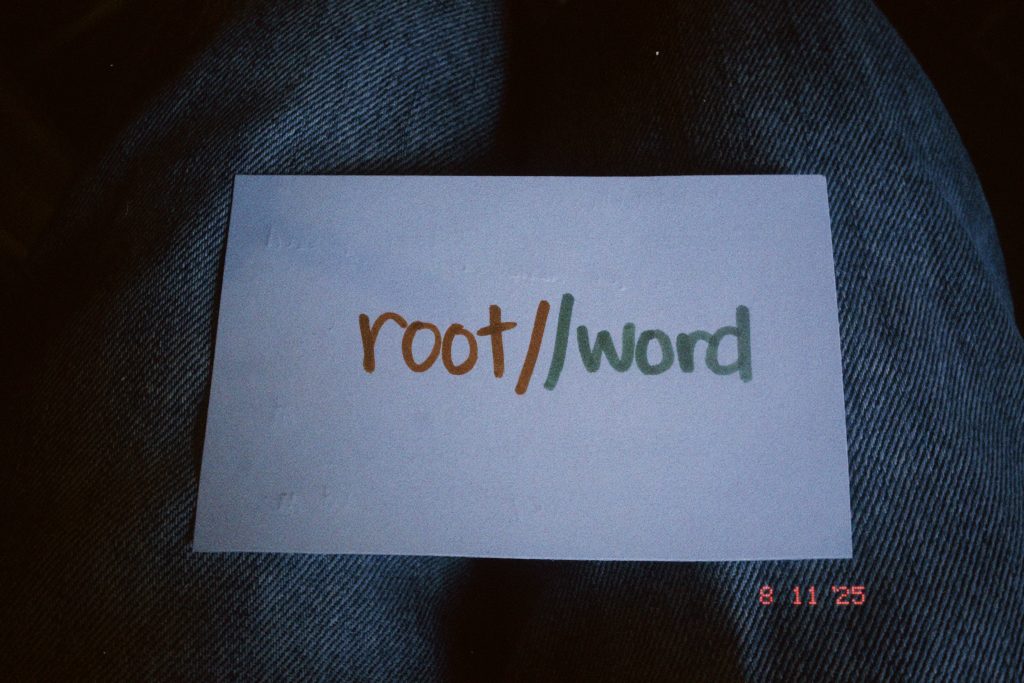 root//word
8 11 '25